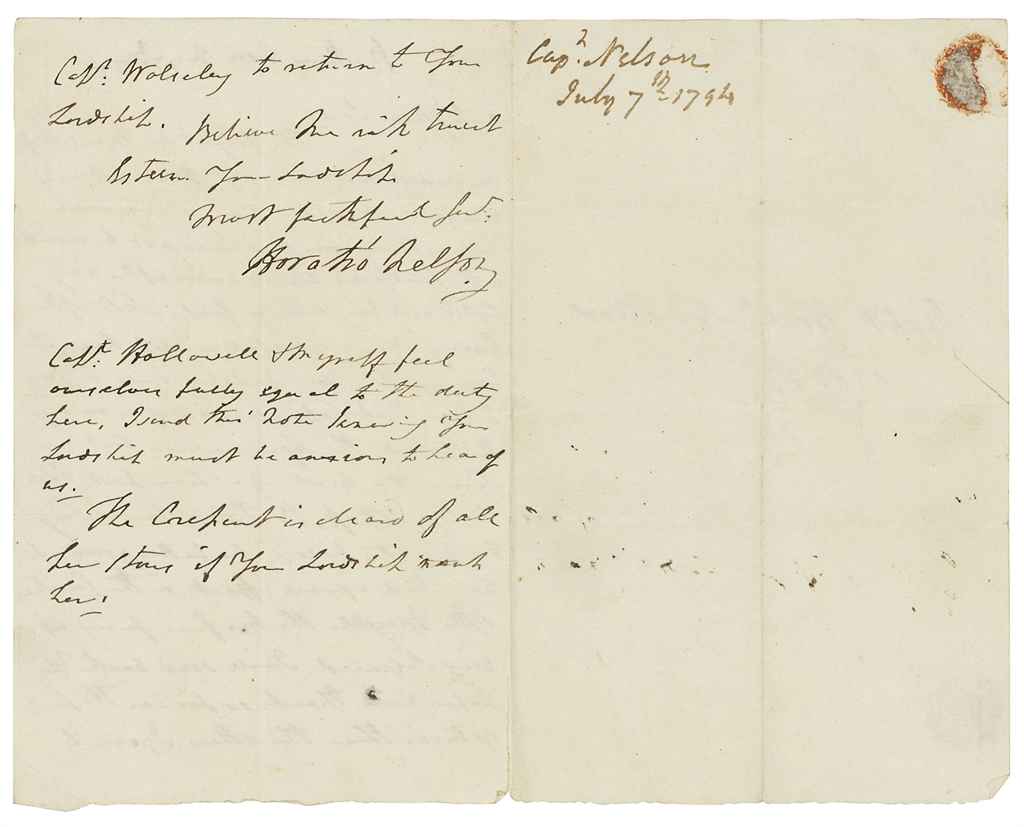 Capt. Wolseley to return to Your
Lordship. Believe Me with truest
Esteem Your Lordship's
Most faithfull Sert.
Horatio Nelson
Capt. Hallowell & Myself feel
ourselves fully equal to the duty
here, I send this Note knowing Your
Lordship must be anxious to hear of
us.
The Corespent is cleard of all
her Stores if Your Lordship wants
her.
Capt. Nelson
July 7th 1794